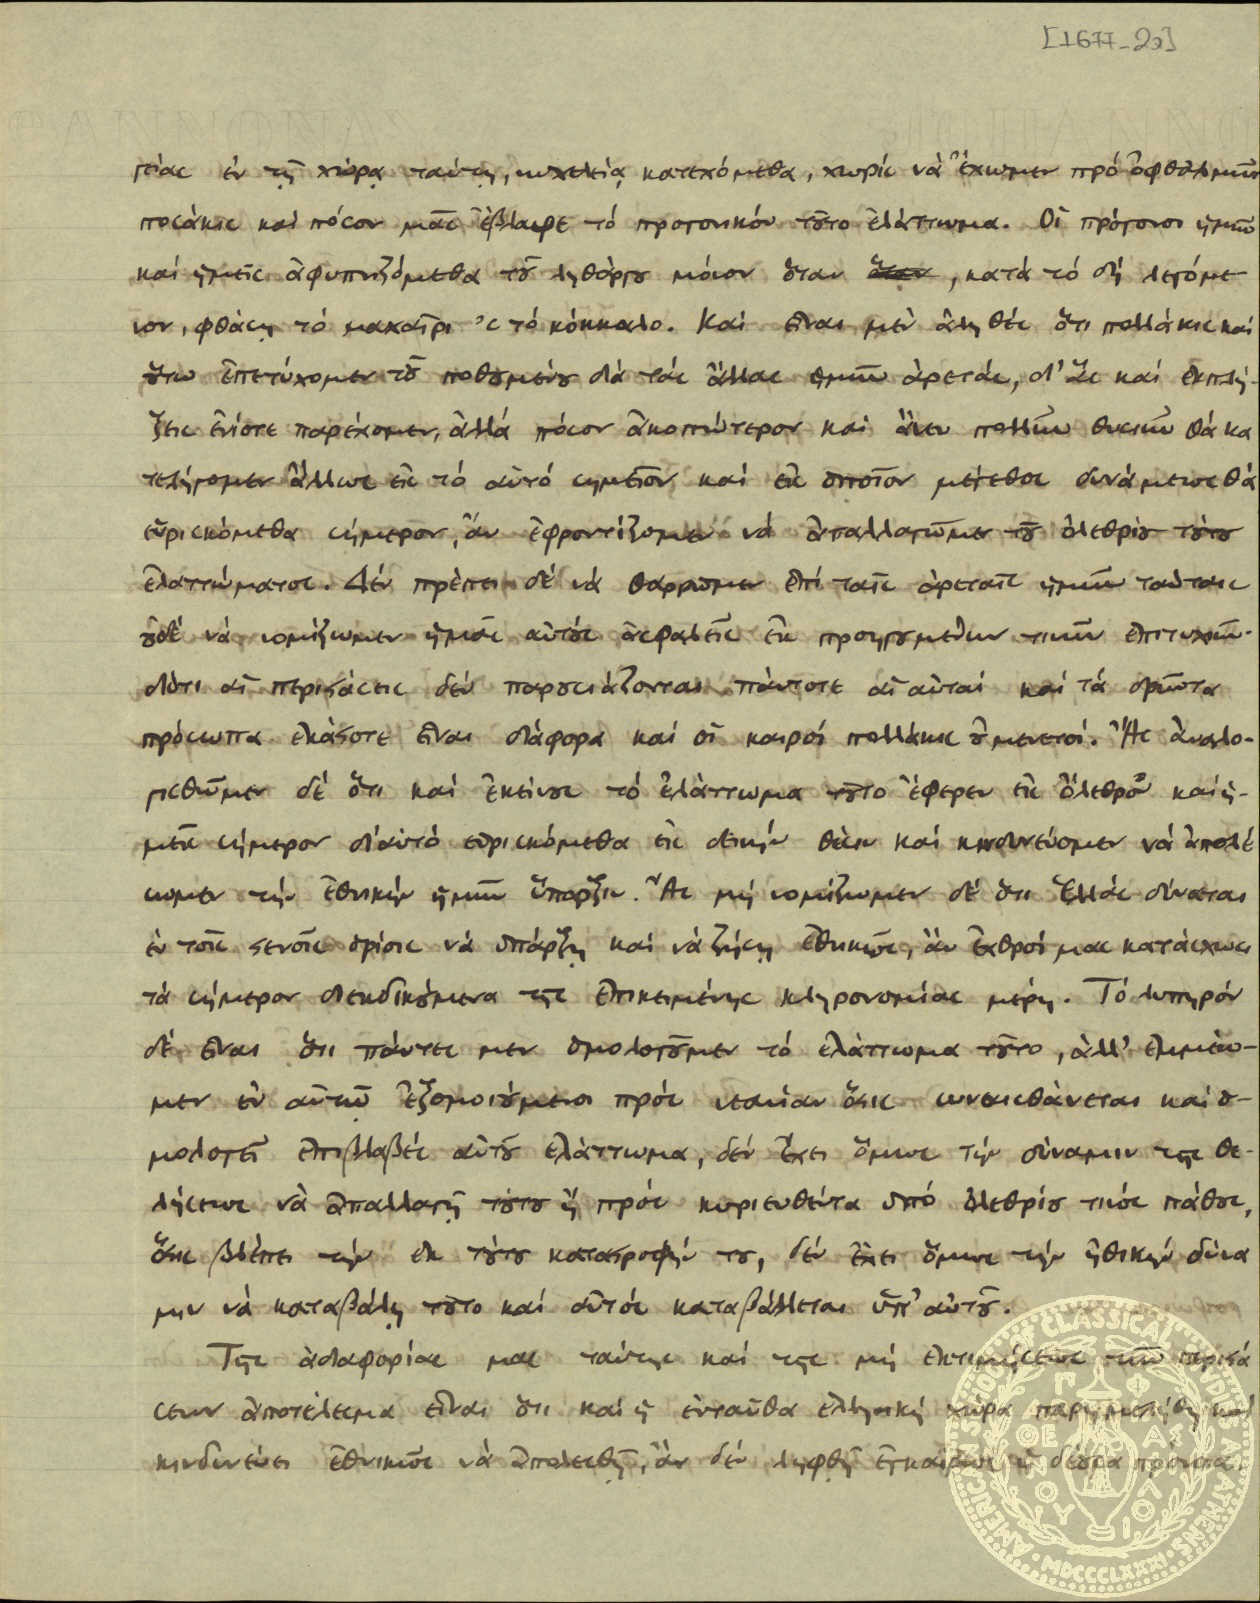 [1677_20]
γείας ἐν τῇ χώρᾳ ταύτῃ, νωχελείᾳ κατεχόμεθα, χωρίς νὰ ἔχωμεν πρό ὀφθαλμῶν
ποσάκις καί πόσον μᾶς ἔβλαψε τό προγονικόν τοῦτο ἐλάττωμα. Οἱ πρόγονοι ἡμῶν
καί ἡμεῖς ἀφυπνιζόμεθα τοῦ ληθάργου μόνον ὅταν, κατά τό δή λεγόμε
νον, φθάσῃ τό μαχαῖρι ’ς τό κόκκαλο. Καί εἶναι μέν ἀληθές ὅτι πολλάκις καί
οὕτω ἐπετύχομεν τοῦ ποθουμένου διά τάς ἄλλας ἡμῶν ἀρετάς, δι’ ἅς καί ἐκπλή-
ξεις ἐνίοτε παρέχομεν, ἀλλά πόσον ἀκοπώτερον καί ἄνευ πολλῶν θυσιῶν θά κα
τελήγομεν ἄλλως εἰς τό αὐτό σημεῖον καί εἰς ὁποῖον μέγεθος δυνάμεως θά
εὑρισκόμεθα σήμερον, ἄν ἐφροντίζομεν νά ἀπαλλαγῶμεν τοῦ ὀλεθρίου τούτου
ἐλαττώματος. Δέν πρέπει δέ νά θαρρῶμεν ἐπί ταῖς ἀρεταῖς ἡμῶν ταύταις
οὐδέ νά νομίζωμεν ἡμᾶς αὐτούς ἀσφαλεῖς ἐκ προηγουμένων τινῶν ἐπιτυχιῶν·
διότι αἱ περιστάσεις δέν παρουσιάζονται πάντοτε αἱ αὐταί καί τά δρῶντα
πρόσωπα ἑκάστοτε εἶναι διάφορα καί οἱ καιροί πολλάκις οὐ μενετοί. Ἄς ἀναλο-
γισθῶμεν δέ ὅτι καί ἐκείνους τό ἐλάττωμα τοῦτο ἔφερεν εἰς ὄλεθρον καί ἡ-
μεῖς σήμερον δι’ αὐτό εὑρισκόμεθα εἰς δεινήν θέσιν καί κινδυνεύομεν νά ἀπολέ
σωμεν τήν ἐθνικήν ἡμῶν ὕπαρξιν. Ἄς μή νομίζωμεν δέ ὅτι Ἑλλάς δύναται
ἐν τοῖς στενοῖς ὁρίοις νά ὑπάρξῃ καί νά ζήσῃ ἐθνικῶς, ἄν ἐχθροί μας κατάσχωσι
τά σήμερον διεκδικούμενα τῆς ἐπικειμένης κληρονομίας μέρη. Τό λυπηρόν
δέ εἶναι ὅτι πάντες μέν ὁμολογοῦμεν τό ἐλάττωμα τοῦτο, ἀλλ’ ἐμμένο-
μεν ἐν αὐτῷ ἐξομοιούμενοι πρός νεανίαν ὅστις συναισθάνεται καί ὁ-
μολογεῖ ἐπιβλαβές αὐτοῦ ἐλάττωμα, δέν ἔχει ὅμως τήν δύναμιν τῆς θε-
λήσεως νὰ ἀπαλλαγῇ τούτου ἤ πρός κυριευθέντα ὑπό ὀλεθρίου τινός πάθους,
ὅστις βλέπει τήν ἐκ τούτου καταστροφήν του, δέν ἔχει ὅμως τήν ἠθικήν δύνα
μιν νά καταβάλῃ τοῦτο καί αὐτός καταβάλλεται ὑπ’ αὐτοῦ.
Τῆς ἀδιαφορίας μας ταύτης καί τῆς μή ἐκτιμήσεως τῶν περιστά
σεων ἀποτέλεσμα εἶναι ὅτι καί ἡ ἐνταῦθα ἑλληνική χώρα παρημελήθη καί
κινδυνεύει ἐθνικῶς νά ἀπολεσθῇ, ἄν δέν ληφθῇ ἐγκαίρως ἡ δέουσα πρόνοια.
AMERICAN SCHOOL OF CLASSICAL STUDIES AT ATHENS
MDCCCLXXXI